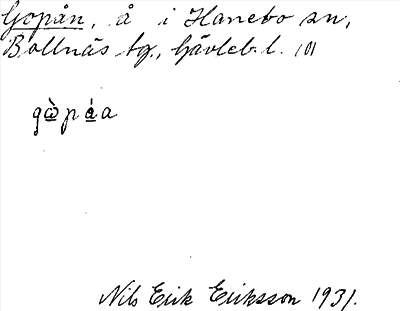 Gopån, å i Hanebo sn,
Bollnäs tg., Gävleb. l. 101
gὼ̱pá̱a
Nils Erik Eriksson 1931.